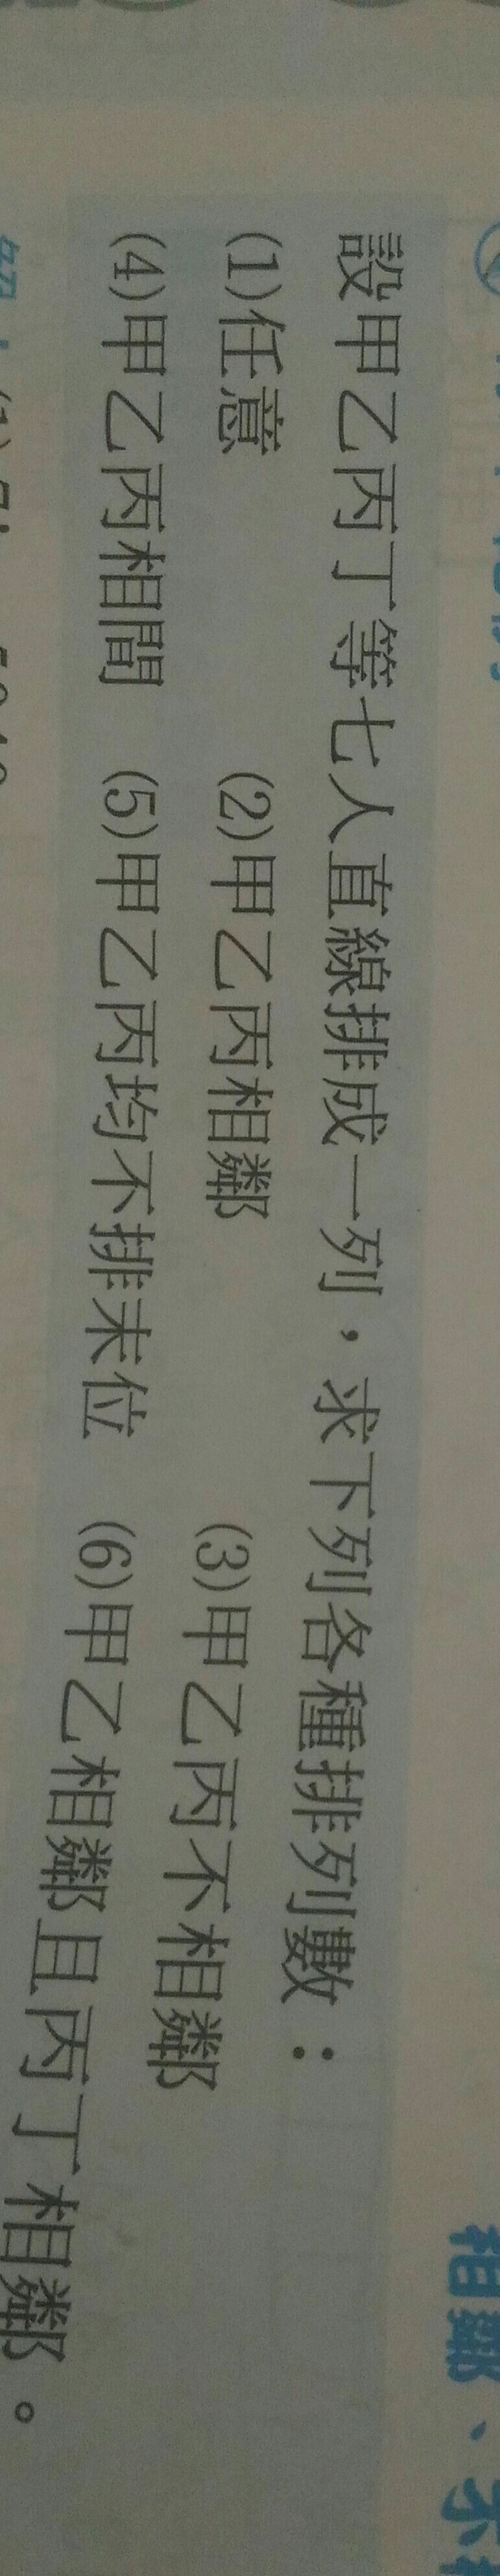 相鄰、不
設甲乙丙丁等七人直線排成一列，求下列各種排列數：
(1)任意 (2)甲乙丙相鄰 (3)甲乙丙不相鄰
(4)甲乙丙相間 (5)甲乙丙均不排末位 (6)甲乙相鄰且丙丁相鄰。